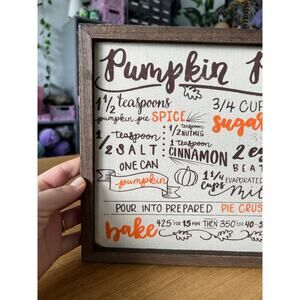 Pumpkin
1 1/2 teaspoons
pumpkin pie SPICE
3/4 CUP
sugar
1/2 teaspoon
SALT
1/2 teaspoon
NUTMEG
1 teaspoon
CINNAMON
2 eg
BEAT
ONE CAN
pumpkin
1 1/4 cups
EVAPORATED
milk
POUR INTO PREPARED PIE CRUS
bake 425° FOR 15 MIN THEN 350° FOR 40-5